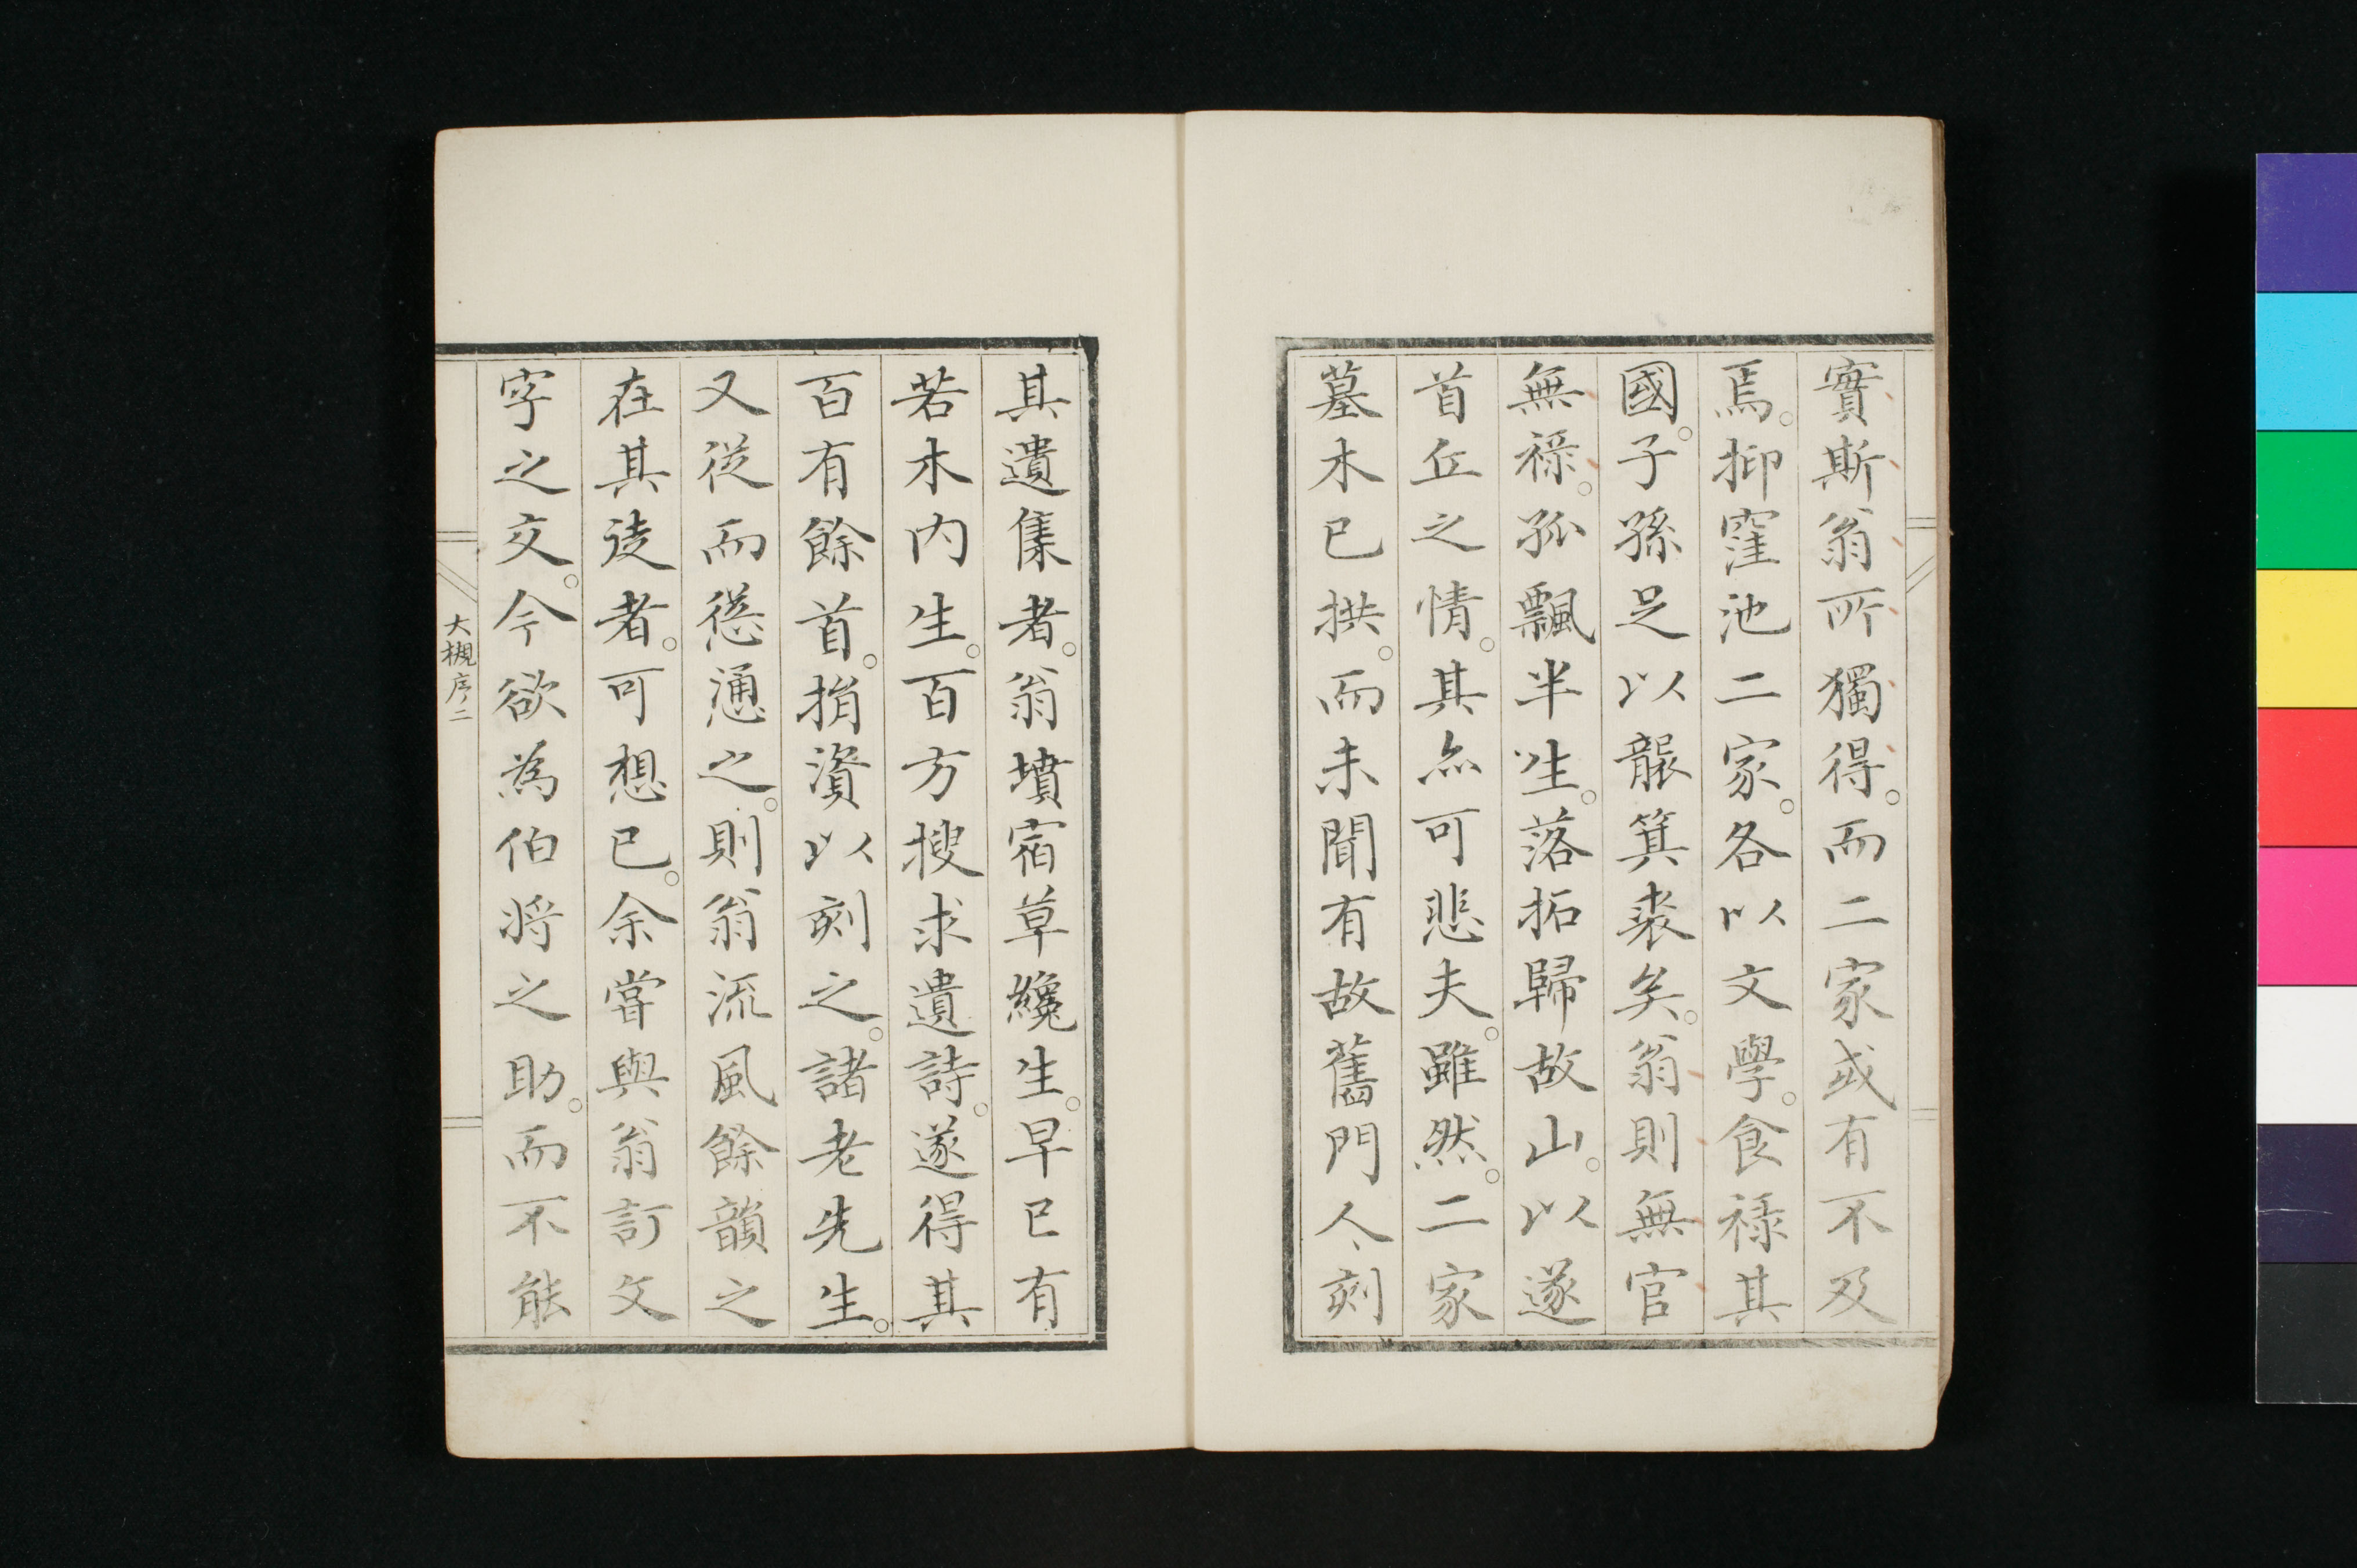 實斯翁所獨得。而二家或有不及
焉。抑窪池二家。各以文學。食祿其
國。子孫足以襲箕裘矣。翁則無官
無祿。孤飄半生。落拓歸故山。以遂
首丘之情。其亦可悲夫。雖然。二家
墓木已拱。而未聞有故舊門人刻
其遺集者。翁墳宿草纔生。早已有
若木內生。百方搜求遺詩。遂得其
百有餘首。捐資以刻之。諸老先生。
又從而慫慂之。則翁流風餘韻之
在其徒者。可想已。余嘗與翁訂文
字之交。今欲為伯將之助。而不能
大槻序二